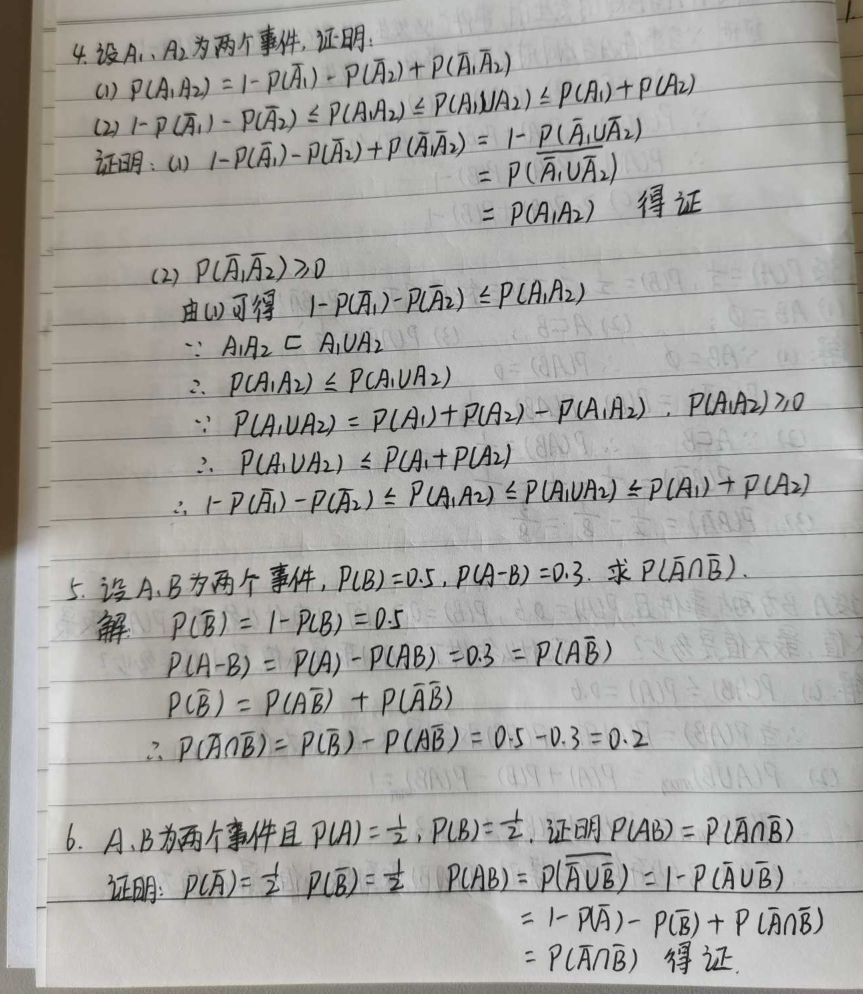 4. 设A₁、A₂为两个事件, 证明:
(1) P(A₁A₂) = 1-P(Ā₁) - P(Ā₂) + P(Ā₁Ā₂)
(2) 1-P(Ā₁) - P(Ā₂) ≤ P(A₁A₂) ≤ P(A₁∪A₂) ≤ P(A₁) + P(A₂)
证明: (1) 1-P(Ā₁)-P(Ā₂)+P(Ā₁Ā₂) = 1- P(Ā₁∪Ā₂)
= P(\overline{Ā₁∪Ā₂})
= P(A₁A₂) 得证
(2) P(Ā₁Ā₂) ≥0
由(1)可得 1-P(Ā₁)-P(Ā₂) ≤ P(A₁A₂)
∵ A₁A₂ ⊏ A₁∪A₂
∴ P(A₁A₂) ≤ P(A₁∪A₂)
∵ P(A₁∪A₂) = P(A₁)+P(A₂) - P(A₁A₂) . P(A₁A₂) ≥0
∴ P(A₁∪A₂) ≤ P(A₁+P(A₂)
∴ 1-P(Ā₁)-P(Ā₂) ≤ P(A₁A₂) ≤ P(A₁∪A₂) ≤ P(A₁) + P(A₂)
5. 设A、B为两个事件, P(B)=0.5, P(A-B)=0.3. 求P(Ā∩B̄).
解 P(B̄) = 1-P(B)=0.5
P(A-B) = P(A)-P(AB)=0.3 = P(AB̄)
P(B̄) = P(AB̄) + P(ĀB̄)
∴ P(Ā∩B̄) = P(B̄) - P(AB̄) = 0.5-0.3=0.2
6. A、B为两个事件且P(A)=½, P(B)=½. 证明P(AB) = P(Ā∩B̄)
证明: P(Ā)=½ P(B̄)=½ P(AB) = P(\overline{Ā∪B̄}) = 1-P(Ā∪B̄)
= 1-P(Ā)-P(B̄) + P(Ā∩B̄)
= P(Ā∩B̄) 得证.